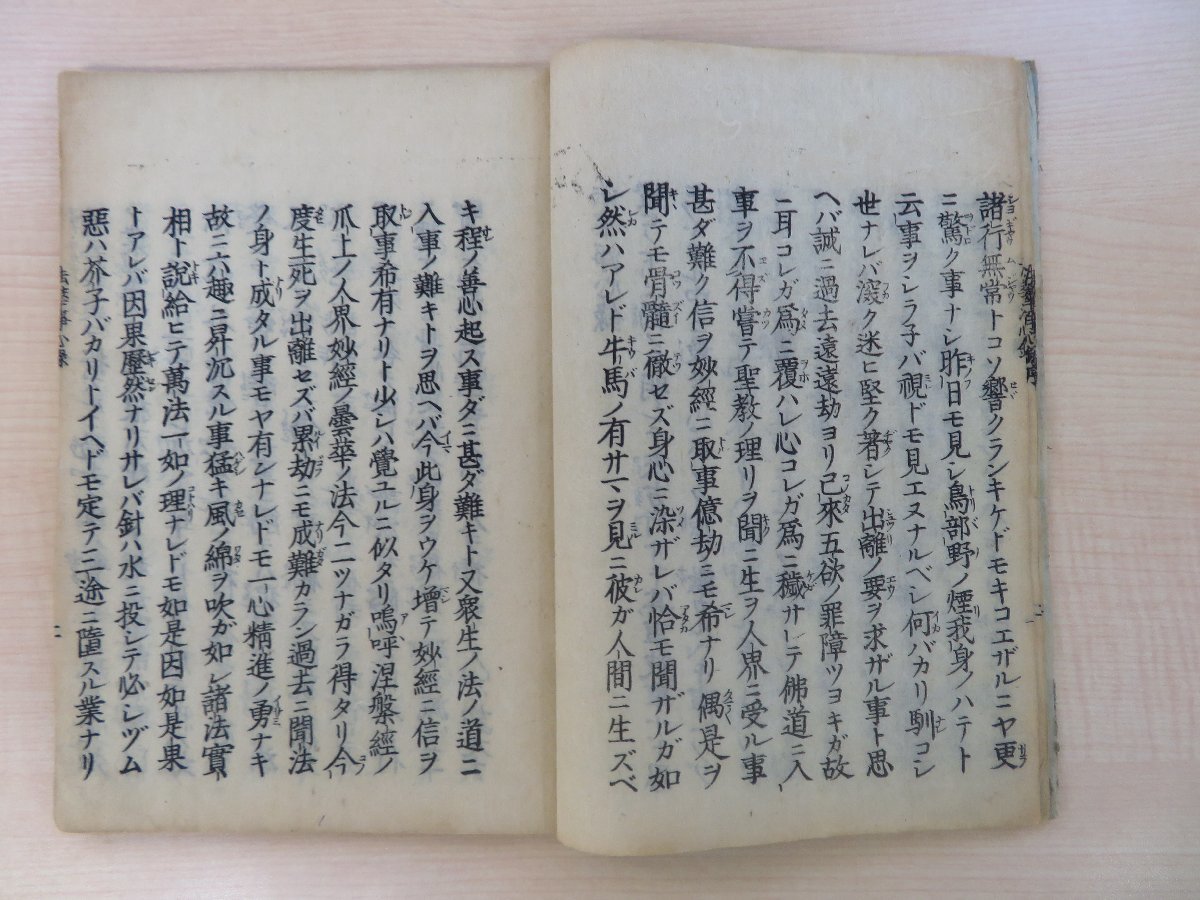 諸行無常トコソ響クランキケドモキコエザルニヤ更
ニ驚ク事ナシ昨日モ見シ鳥部野ノ煙我身ノハテト
云事ヲシラ子バ視ドモ見エヌナルベシ何バカリ馴コシ
世ナレバ深ク迷ヒ堅ク著シテ出離ノ要ヲ求ザル事ト思
ヘバ誠ニ過去遠遠劫ヨリ已來五欲ノ罪障ツヨキガ故
ニ耳コレガ爲ニ覆ハレ心コレガ爲ニ穢サレテ佛道ニ入
事ヲ不得嘗テ聖教ノ理リヲ聞ニ生ヲ人界ニ受ル事
甚ダ難ク信ヲ妙經ニ取事億劫ニモ希ナリ偶是ヲ
聞テモ骨髓ニ徹セズ身心ニ染ザレバ恰モ聞ザルガ如
シ然ハアレド牛馬ノ有サマヲ見ニ彼ガ人間ニ生ズベ
キ程ノ善心起ス事ダニ甚ダ難キト又衆生ノ法ノ道ニ
入事ノ難キトヲ思ヘバ今此身ヲウケ増テ妙經ニ信ヲ
取事希有ナリト少シハ覺ユルニ似タリ嗚呼涅槃經ノ
爪上ノ人界妙經ノ曇華ノ法今二ツナガラ得タリ今
度生死ヲ出離セズバ累劫ニモ成難カラン過去ニ聞法
ノ身ト成タル事モヤ有シナレドモ一心精進ノ勇ナキ
故ニ六趣ニ昇沉スル事猛キ風ノ綿ヲ吹ガ如シ諸法實
相ト說給ヒテ萬法一如ノ理ナレドモ如是因如是果
トアレバ因果歷然ナリサレバ針ハ水ニ投シテ必シヅム
惡ハ芥子バカリトイヘドモ定テ三途ニ墮スル業ナリ